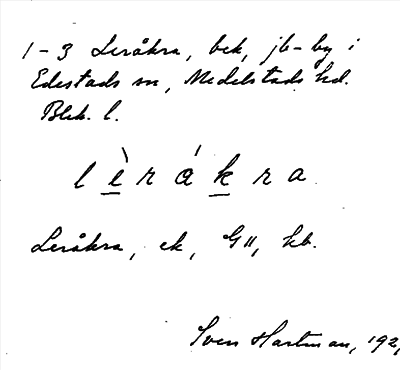 1-3 Leråkra, bek, jb-by i
Edestads sn, Medelstads hd.
Blek. l.
l è r á k r a
Leråkra, ek, G11, kb.
Sven Hartman, 192